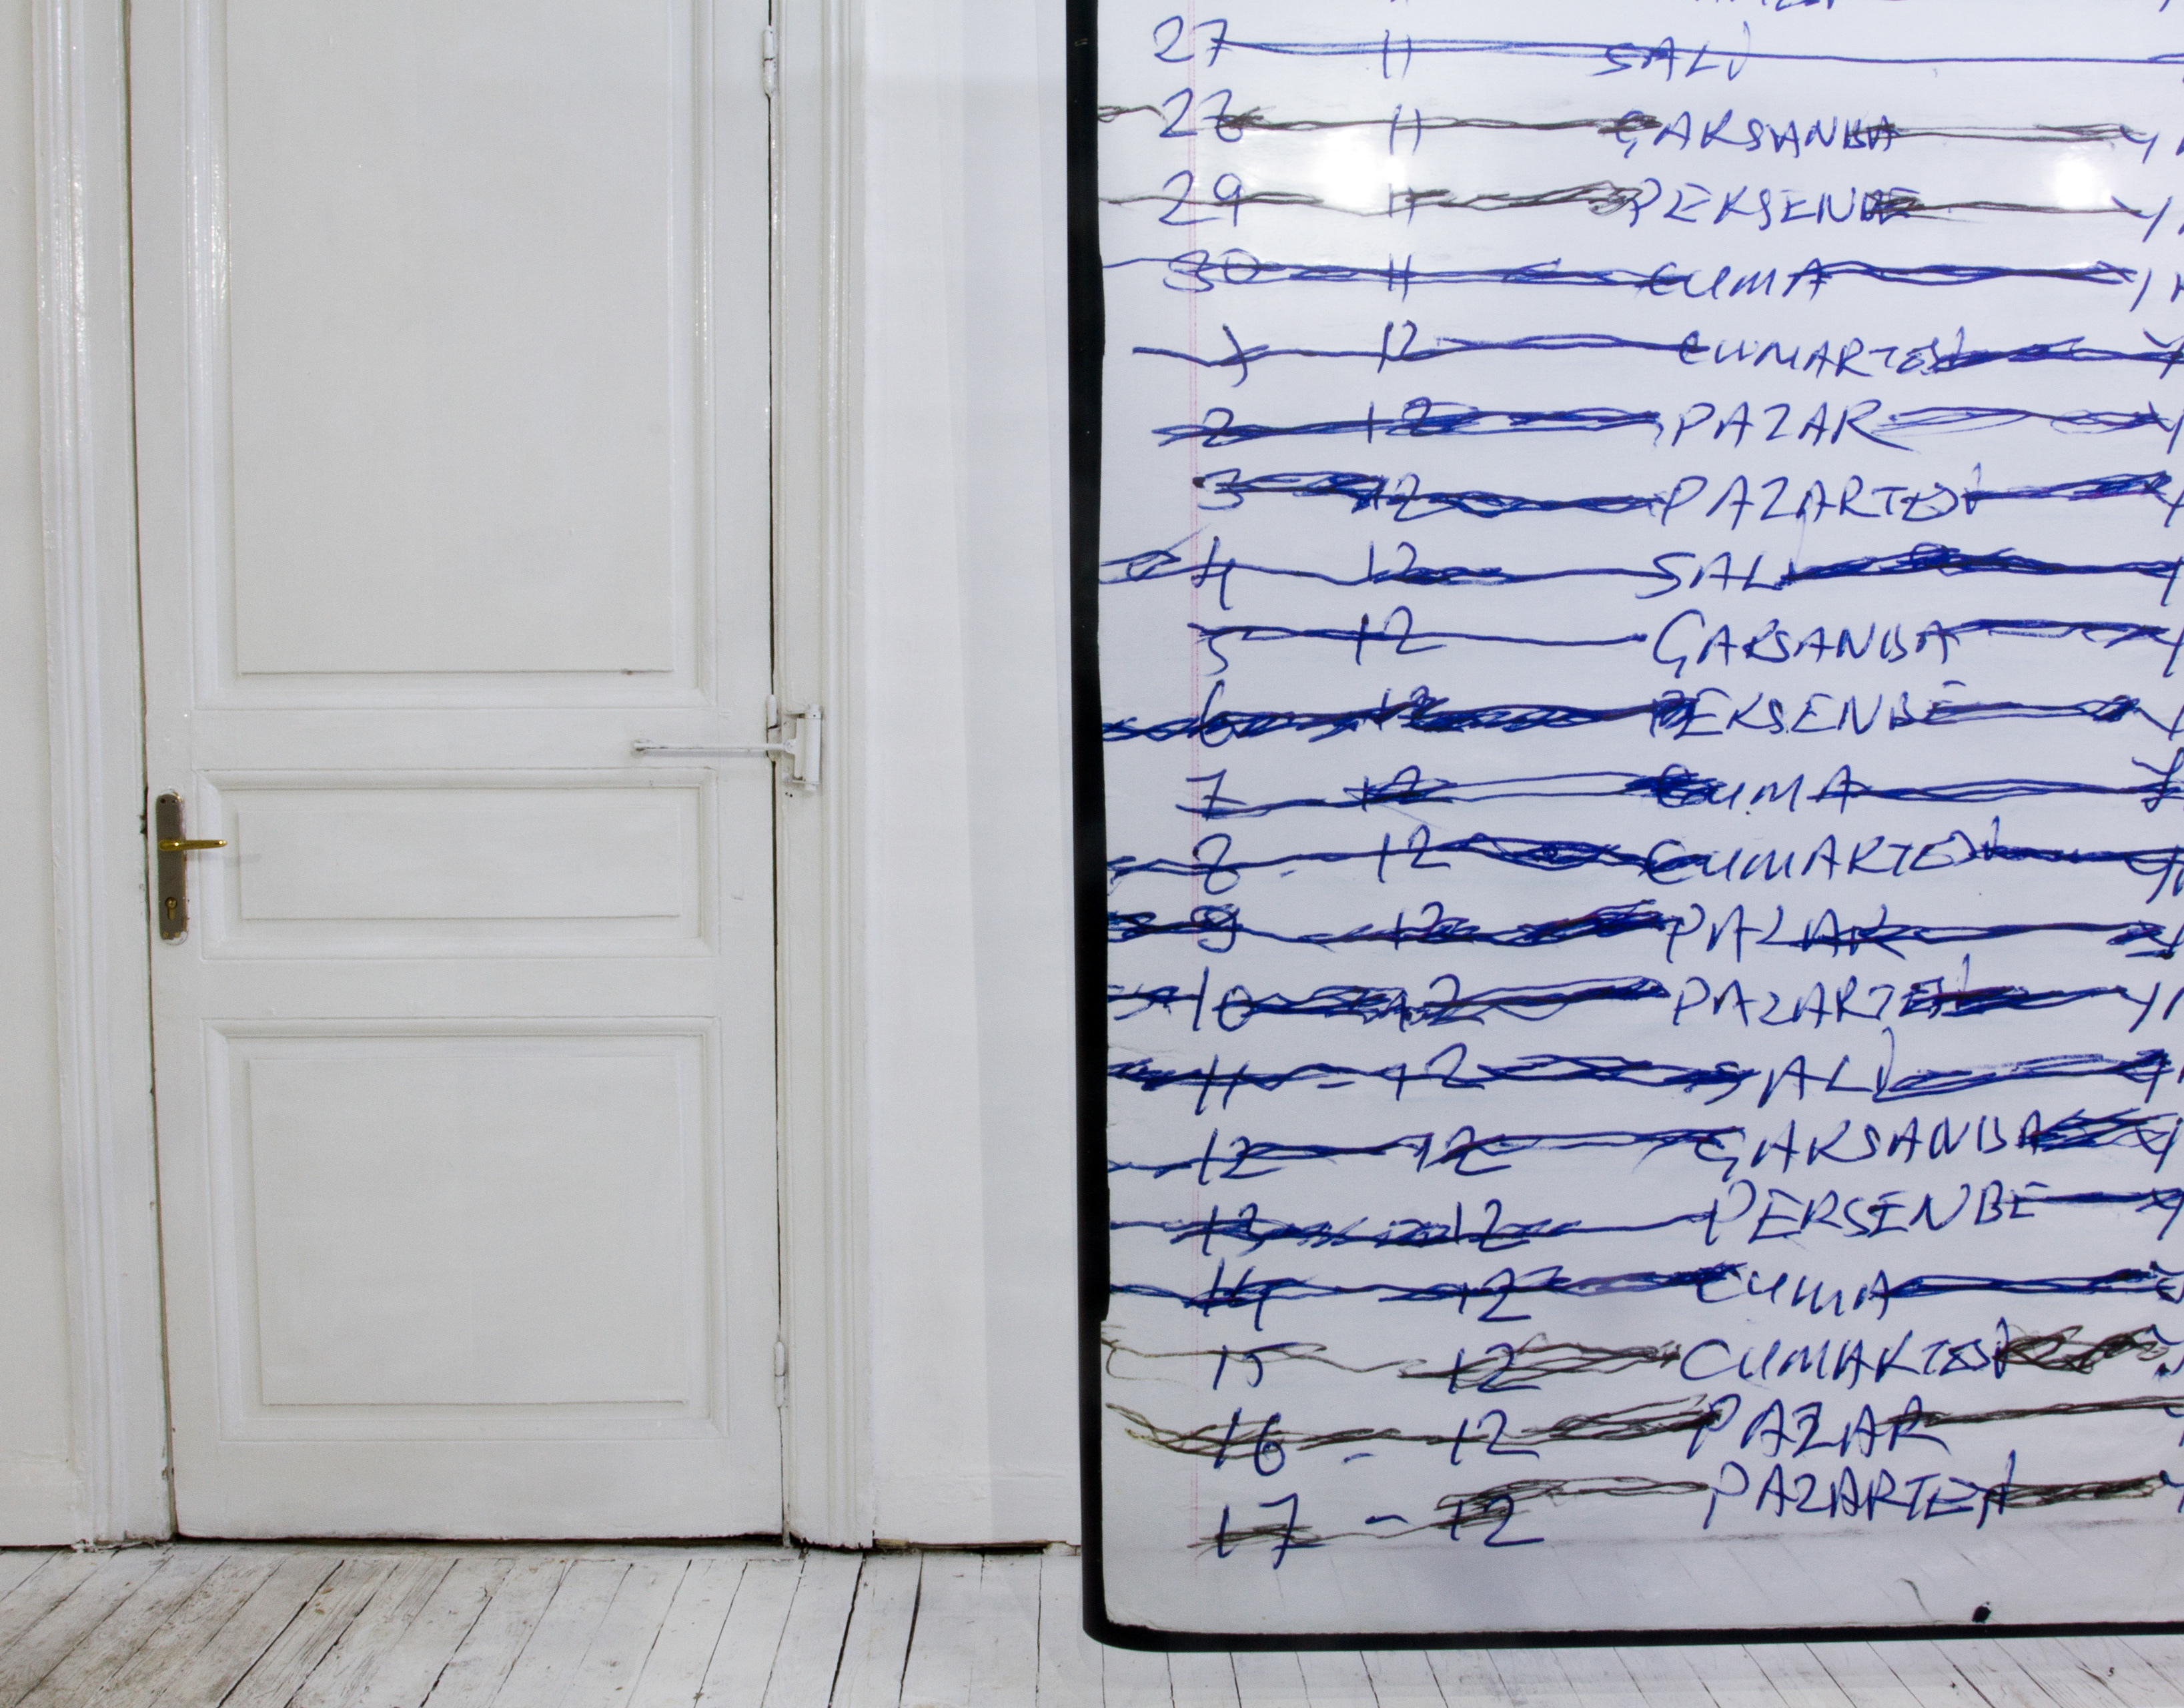 27 11 SALI
28 11 ÇARSANBA
29 11 PERSENBE
30 11 CUMA
1 12 CUMARTESI
2 12 PAZAR
3 12 PAZARTESI
4 12 SALI
5 12 ÇARSANBA
6 12 PERSENBE
7 12 CUMA
8 - 12 CUMARTESI
9 12 PAZAR
10 12 PAZARTESI
11 - 12 SALI
12 12 ÇARSANBA
13 12 PERSENBE
14 12 CUMA
15 12 CUMARTESI
16 - 12 PAZAR
17 - 12 PAZARTESI